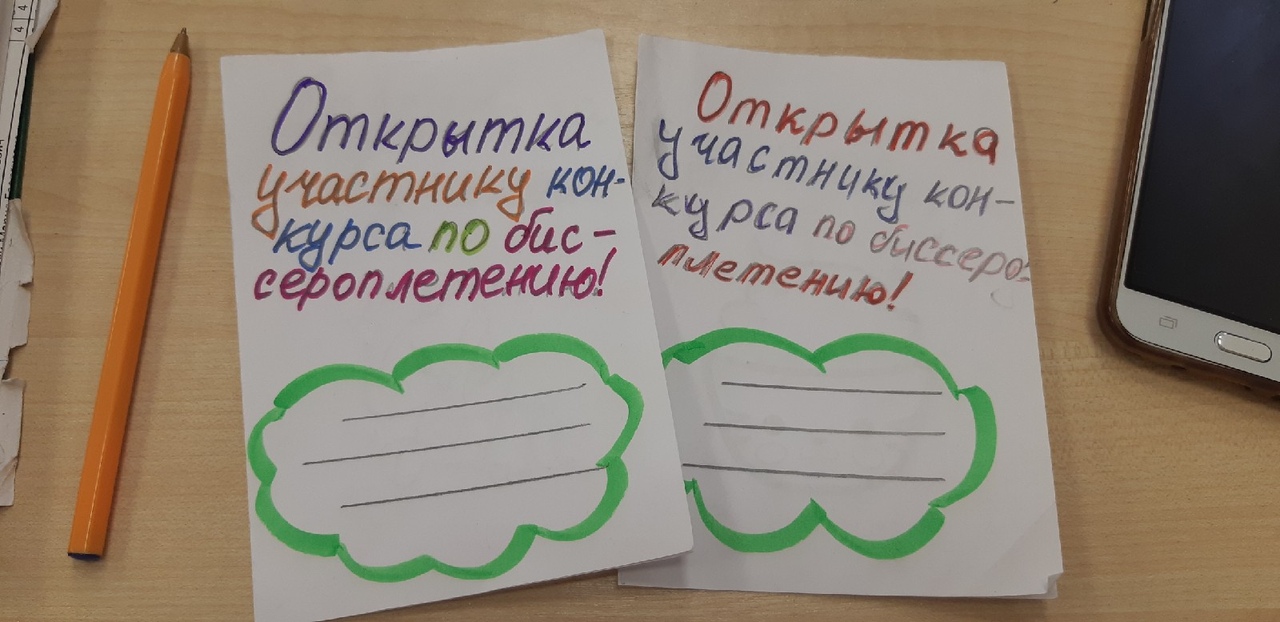 Открытка
участнику кон-
курса по бис-
сероплетению!
Открытка
участнику кон-
курса по биссеро-
плетению!